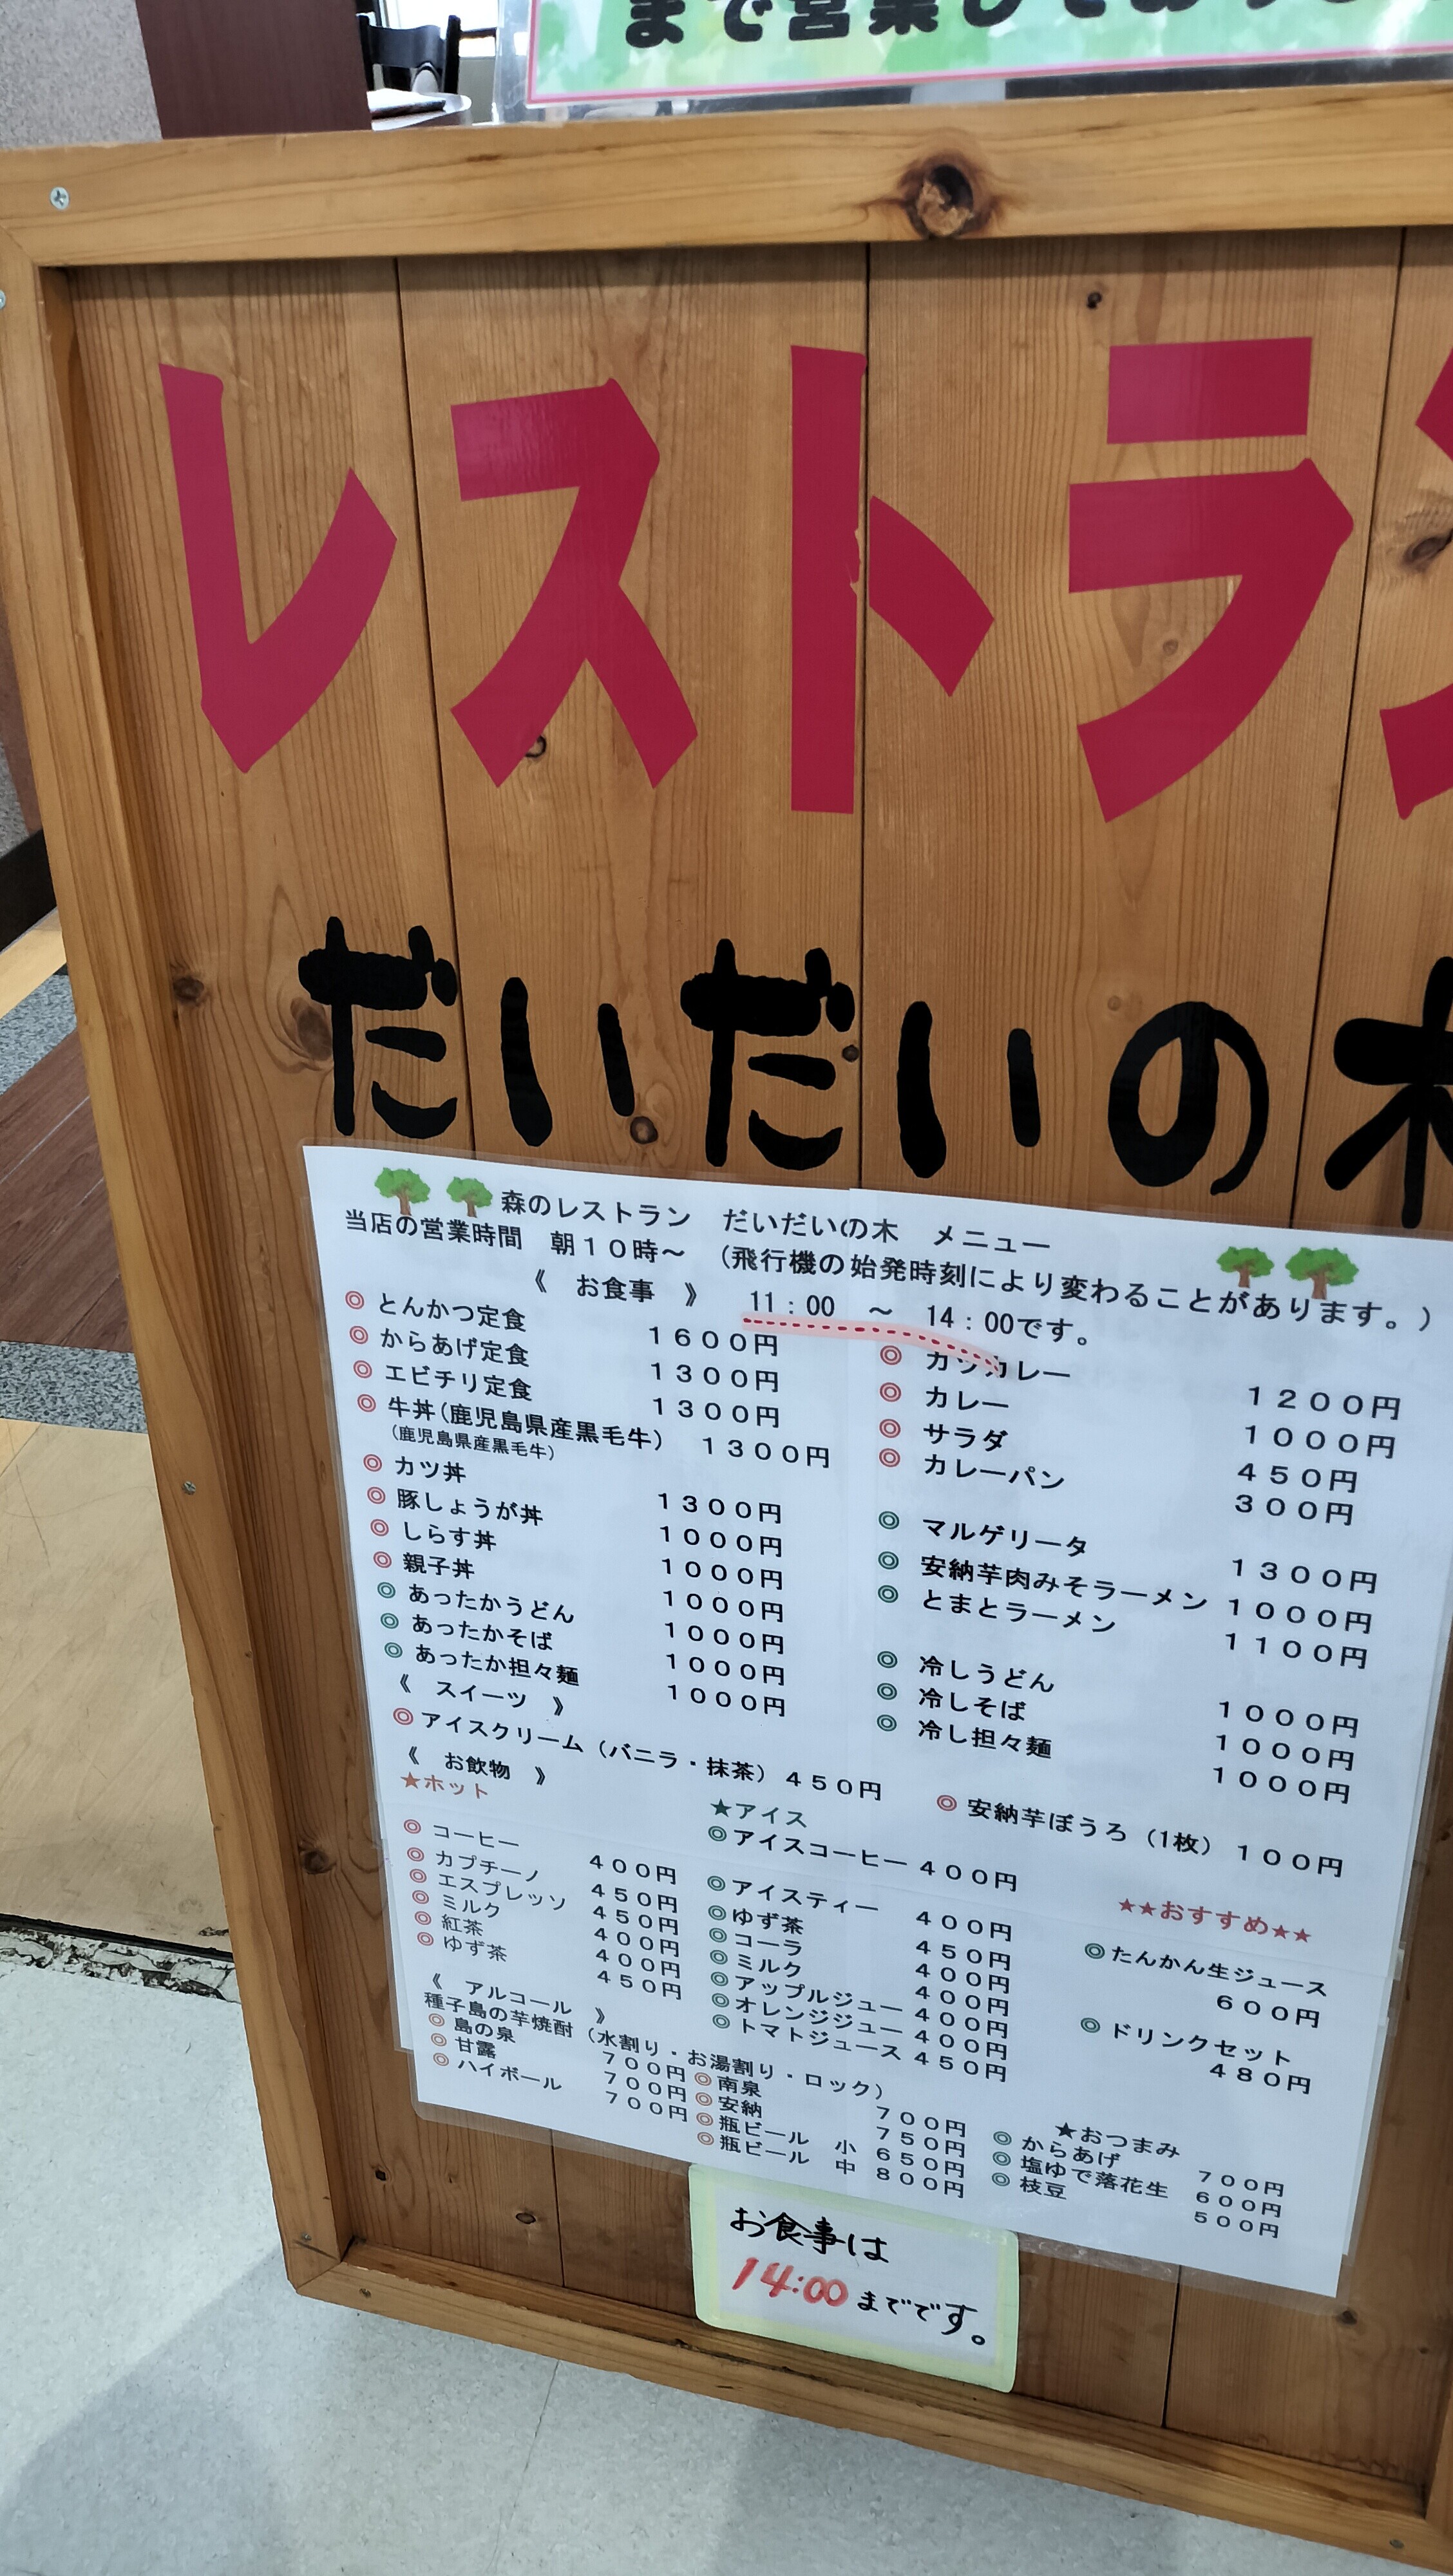 まで営業しており
レストラン
だいだいの木
森のレストラン　だいだいの木　メニュー
当店の営業時間　朝１０時～　（飛行機の始発時刻により変わることがあります。）
《　お食事　》　11：00　～　14：00です。
◎ とんかつ定食　１６００円
◎ からあげ定食　１３００円
◎ エビチリ定食　１３００円
◎ 牛丼(鹿児島県産黒毛牛)　１３００円
(鹿児島県産黒毛牛)
◎ カツ丼　１３００円
◎ 豚しょうが丼　１０００円
◎ しらす丼　１０００円
◎ 親子丼　１０００円
◎ あったかうどん　１０００円
◎ あったかそば　１０００円
◎ あったか担々麺　１０００円
◎ カツカレー　１２００円
◎ カレー　１０００円
◎ サラダ　４５０円
◎ カレーパン　３００円
◎ マルゲリータ　１３００円
◎ 安納芋肉みそラーメン　１０００円
◎ とまとラーメン　１１００円
◎ 冷しうどん　１０００円
◎ 冷しそば　１０００円
◎ 冷し担々麺　１０００円
《　スイーツ　》
◎ アイスクリーム（バニラ・抹茶）４５０円
◎ 安納芋ぼうろ（1枚）１００円
《　お飲物　》
★ホット
◎ コーヒー　４００円
◎ カプチーノ　４５０円
◎ エスプレッソ　４５０円
◎ ミルク　４００円
◎ 紅茶　４００円
◎ ゆず茶　４５０円
★アイス
◎ アイスコーヒー　４００円
◎ アイスティー　４００円
◎ ゆず茶　４５０円
◎ コーラ　４００円
◎ ミルク　４００円
◎ アップルジュー　４００円
◎ オレンジジュー　４００円
◎ トマトジュース　４５０円
★★おすすめ★★
◎ たんかん生ジュース
６００円
◎ ドリンクセット
４８０円
《　アルコール　》
種子島の芋焼酎（水割り・お湯割り・ロック）
◎ 島の泉　７００円
◎ 甘露　７００円
◎ ハイボール　７００円
◎ 南泉　７００円
◎ 安納　７５０円
◎ 瓶ビール　小　６５０円
◎ 瓶ビール　中　８００円
★おつまみ
◎ からあげ　７００円
◎ 塩ゆで落花生　６００円
◎ 枝豆　５００円
お食事は
14:00までです。